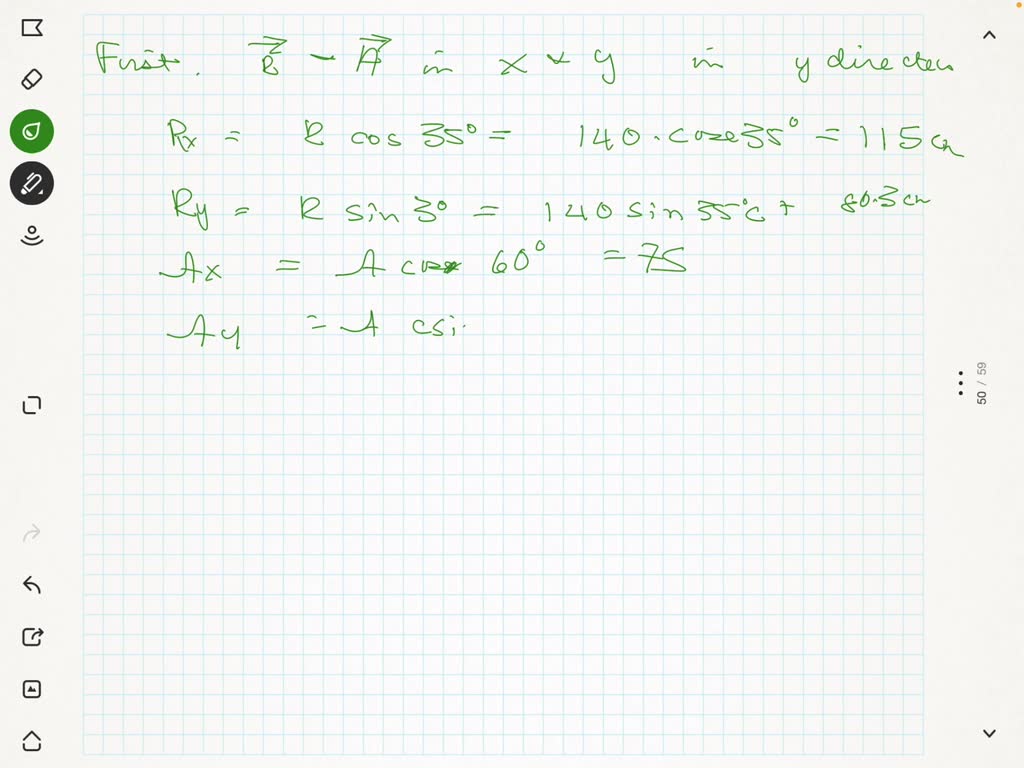 First. B - A in x & y in y directen
Rx = R cos 35° = 140 . cose35° = 115 cm
Ry = R sin 3° = 140 sin 35°c + 80.3 cm
Ax = A cos 60° = 75
Ay = A csi.
50 / 59